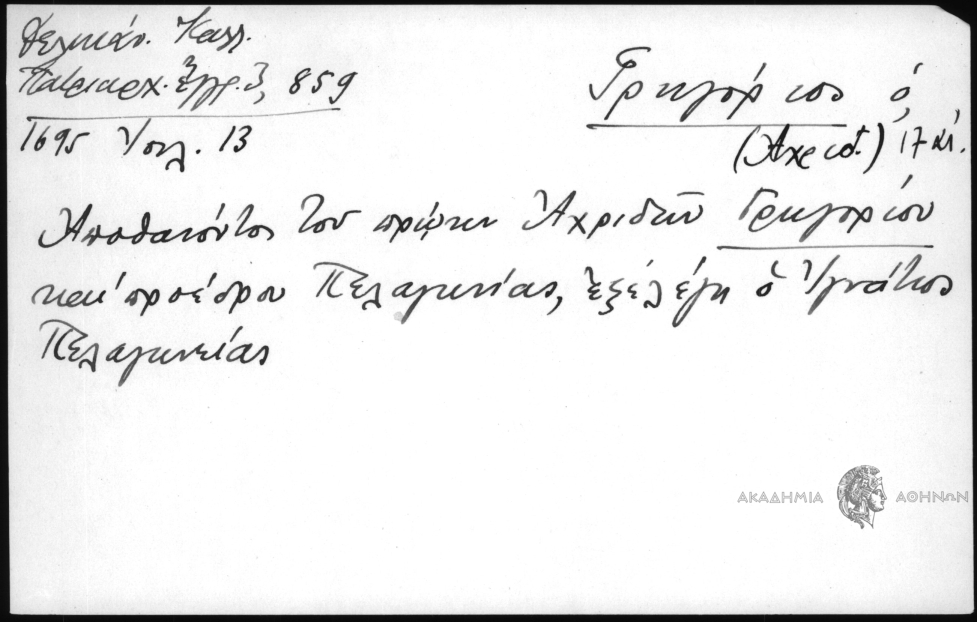 Δελικάν. Καλλ.
Πατριαρχ. Ἔγγρ. 3, 859
1695 Ἰουλ. 13
Γρηγόριος ὁ,
(Ἀχριδ.) 17 αἰ.
Ἀποθανόντος τοῦ πρώην Ἀχριδῶν Γρηγορίου
καί προέδρου Πελαγωνίας, ἐξελέγη ὁ Ἰγνάτιος
Πελαγωνείας
ΑΚΑΔΗΜΙΑ ΑΘΗΝΩΝ